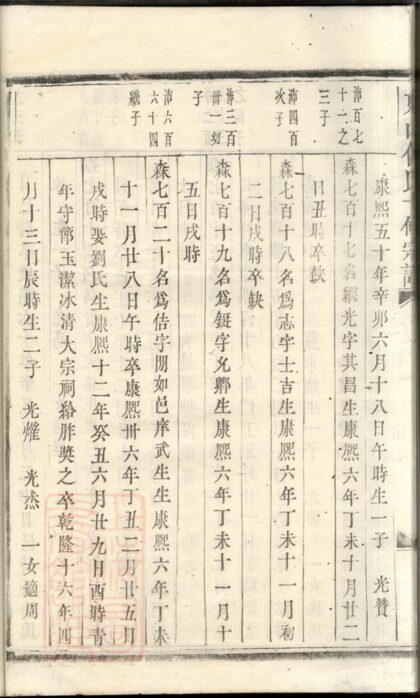 康熙五十年辛卯六月十八日午時生一子　光贊
沛百七十一之三子
森七百十七名繼光字其昌生康熙六年丁未十月廿二日丑時卒缺
沛四百次子
森七百十八名爲志字士吉生康熙六年丁未十一月初二日戌時卒缺
沛三百卅一幼子
森七百十九名爲鋌字允鄉生康熙六年丁未十一月十五日戌時
沛六百六十四繼子
森七百二十名爲佶字閒如邑庠武生生康熙六年丁未十一月廿八日午時卒康熙卅六年丁丑二月廿五月戌時娶劉氏生康熙十二年癸丑六月廿九日酉時青年守節玉潔冰清大宗祠給胙奬之卒乾隆十六年四月十三日辰時生二子　光熣　光杰　一女適周